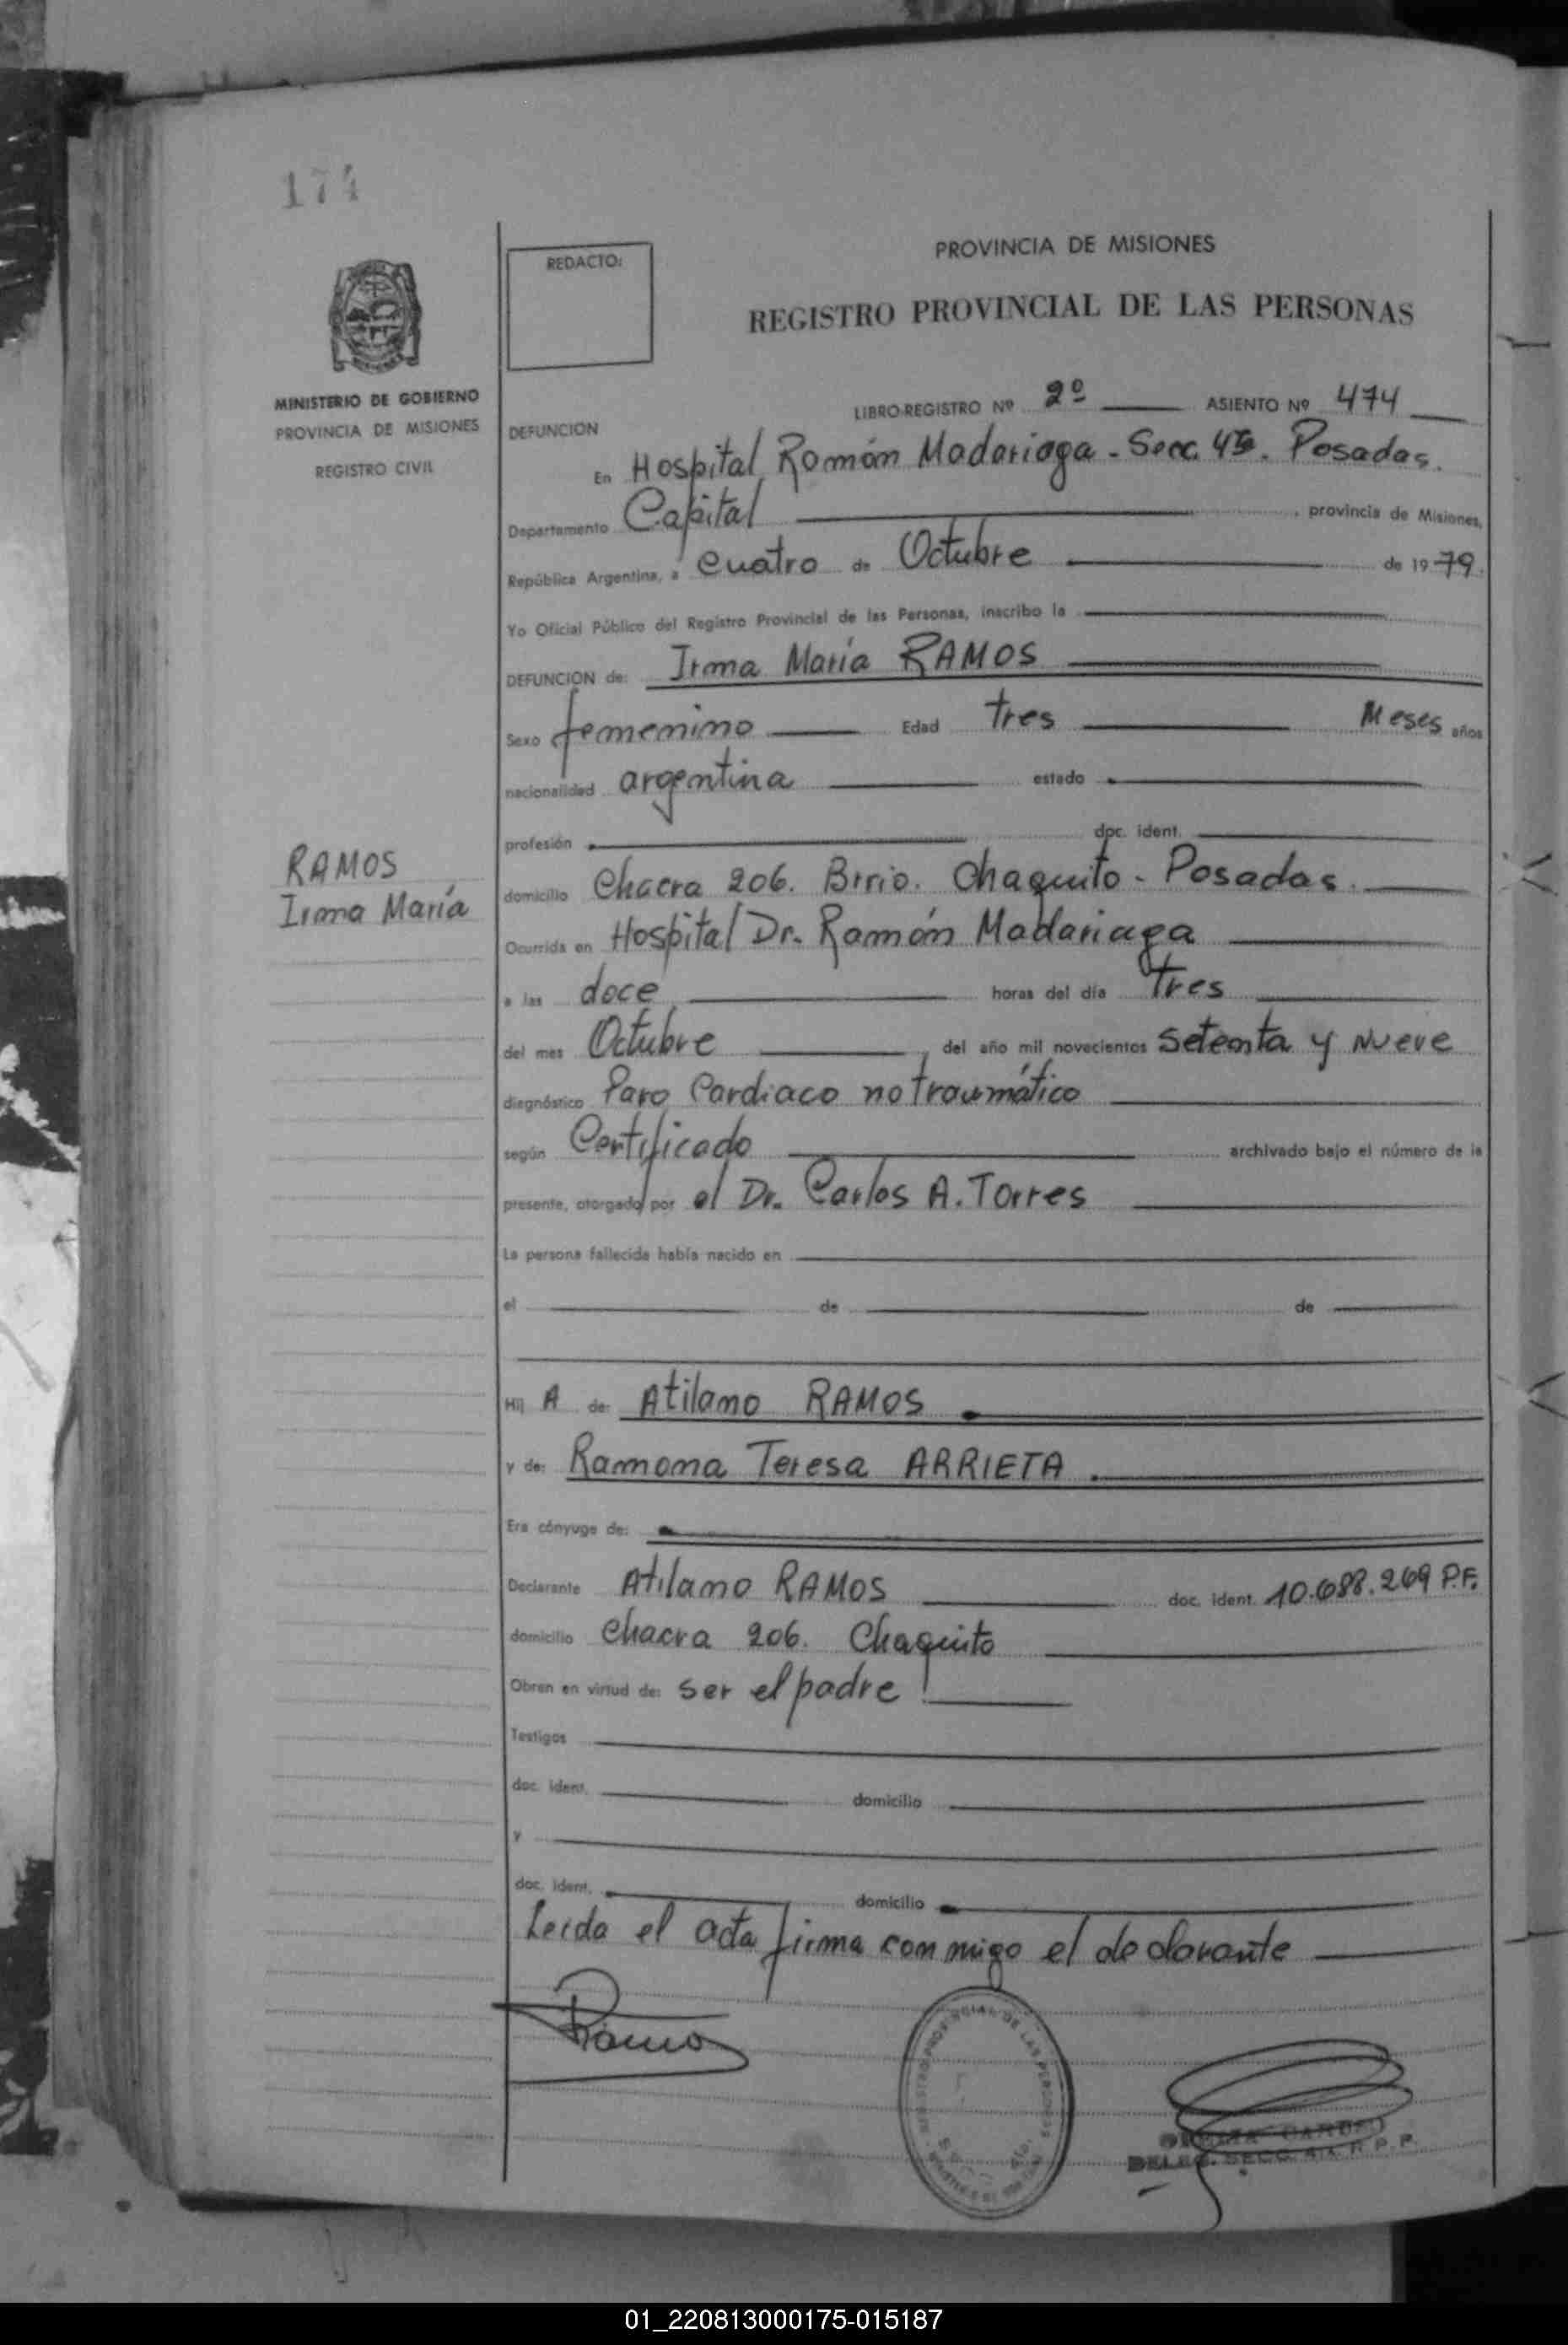 174
MINISTERIO DE GOBIERNO
PROVINCIA DE MISIONES
REGISTRO CIVIL
RAMOS
Irma María
REDACTO:
PROVINCIA DE MISIONES
REGISTRO PROVINCIAL DE LAS PERSONAS
LIBRO-REGISTRO Nº 2º ASIENTO Nº 474
DEFUNCION
En Hospital Ramón Madariaga - Secc. 4ta. Posadas.
Departamento Capital, provincia de Misiones,
República Argentina, a cuatro de Octubre de 1979.
Yo Oficial Público del Registro Provincial de las Personas, inscribo la
DEFUNCION de: Irma María RAMOS
Sexo femenino Edad tres Meses años
nacionalidad argentina estado
profesión doc. ident.
domicilio Chacra 206. Brrio. Chaquito - Posadas.
Ocurrida en Hospital Dr. Ramón Madariaga
a las doce horas del día tres
del mes Octubre, del año mil novecientos setenta y nueve
diagnóstico Paro Cardiaco no traumático
según Certificado archivado bajo el número de la
presente, otorgado por el Dr. Carlos A. Torres
La persona fallecida había nacido en
el de de
Hij A de: Atilano RAMOS
y de: Ramona Teresa ARRIETA
Era cónyuge de:
Declarante Atilano RAMOS doc. ident. 10.688.269 P.F.
domicilio Chacra 206. Chaquito
Obran en virtud de: ser el padre
Testigos
doc. ident. domicilio
y
doc. ident. domicilio
Leida el acta firma conmigo el declarante
Ramos
REGISTRO PROVINCIAL DE LAS PERSONAS
DELEG. SECC. 4ta. R. P. P.
01_220813000175-015187